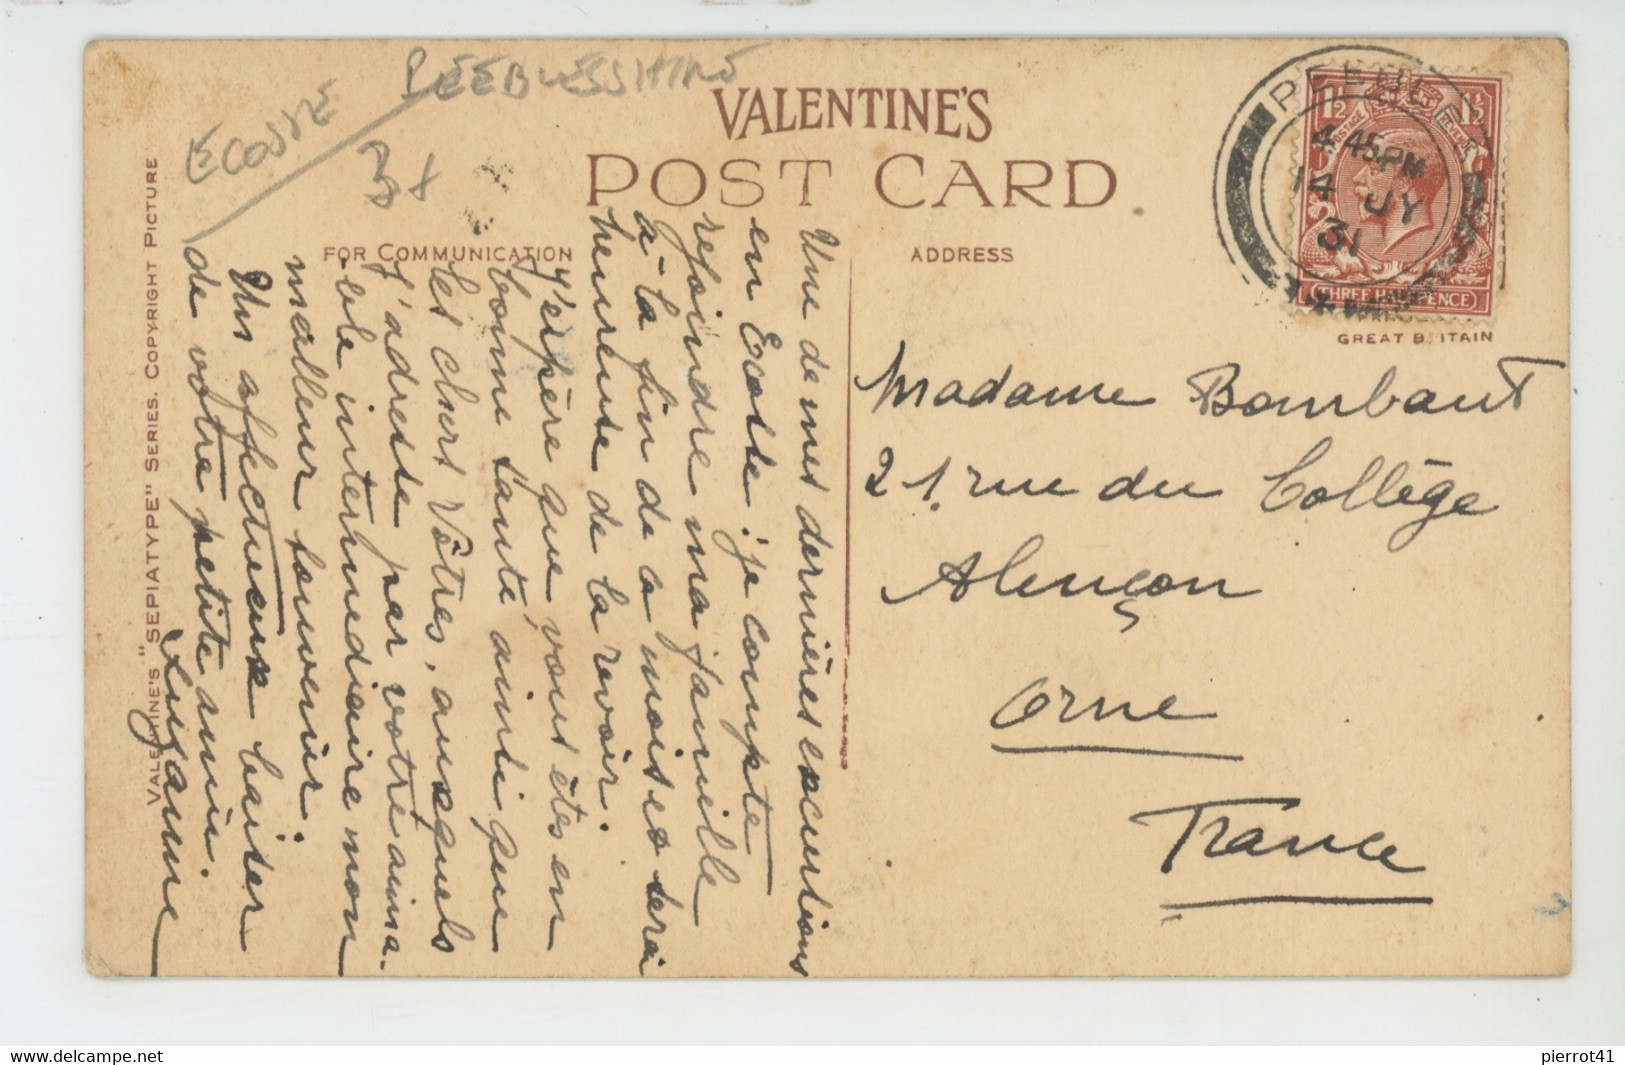 ECOSSE
PEEBLESSHIRE
VALENTINE'S
POST CARD
FOR COMMUNICATION
ADDRESS
VALENTINE'S "SEPIATYPE" SERIES. COPYRIGHT PICTURE
PEEBLES
4.45PM
14 JY
31
1½ 1½
POSTAGE REVENUE
THREE HALFPENCE
GREAT B ITAIN
Une de mes dernières excursions
en Ecosse : je compte
rejoindre ma famille
à la fin de ce mois et serai
heureuse de la revoir.
J'espère que vous êtes en
bonne santé ainsi que
les chers Vôtres, auxquels
j'adresse par votre aima-
ble intermédiaire mon
meilleur souvenir.
Un affectueux baiser
de votre petite amie.
Madame Bombaut
21 rue du Collège
Alençon
Orne
France
delcampe.net
pierrot41